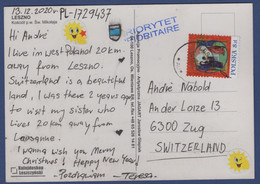 13.12.2020r. PL-1729437
LESZNO
PRIORYTET
PRIORITAIRE
Hi André
I live in west Poland 20 km
away from Leszno.
Switzerland is a beautiful
land, I was there 2 years ago
to visit my sister who
lives 20 km away from
Lausanne.
I wanna wish you Merry
Christmas & Happy New Year!
Pozdrawiam - Teresa
POLSKA
André Näbold
Ander Loize 13
6300 Zug
SWITZERLAND
Leszczyński